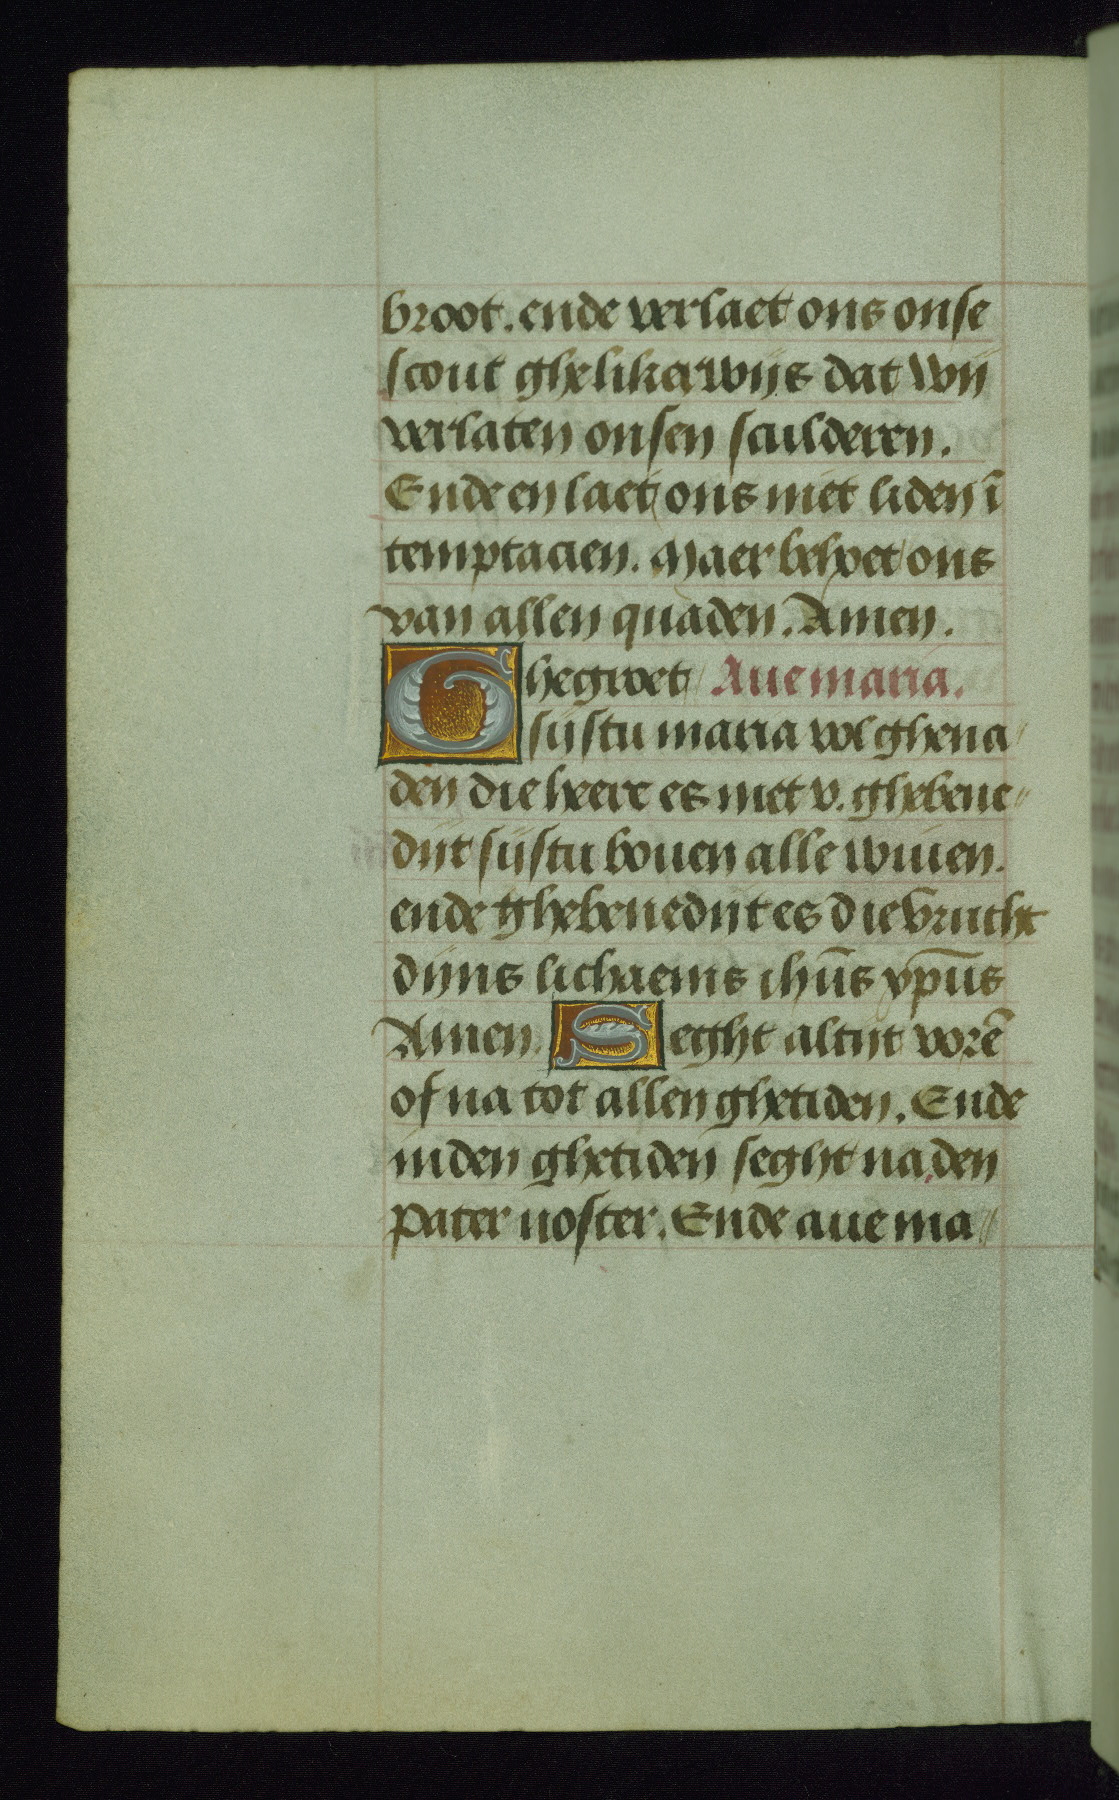 broot. ende verlaet ons onse
scout ghelikerwijs dat wij
verlaten onsen sculderen.
Ende en laet ons niet liden ī
temptacien. Maer behoet ons
van allen quaden. Amen.
Ghegroet Aue maria.
sijstu maria vol ghena
den die heere es met v. ghebene
dijt sijstu bouen alle wiuen.
ende ghebenedijt es die vrucht
dijns lichaems ihūs xp̄us
Amen. Seght altijt vorē
of na tot allen ghetiden. Ende
inden ghetiden seght na den
Pater noster. Ende aue ma